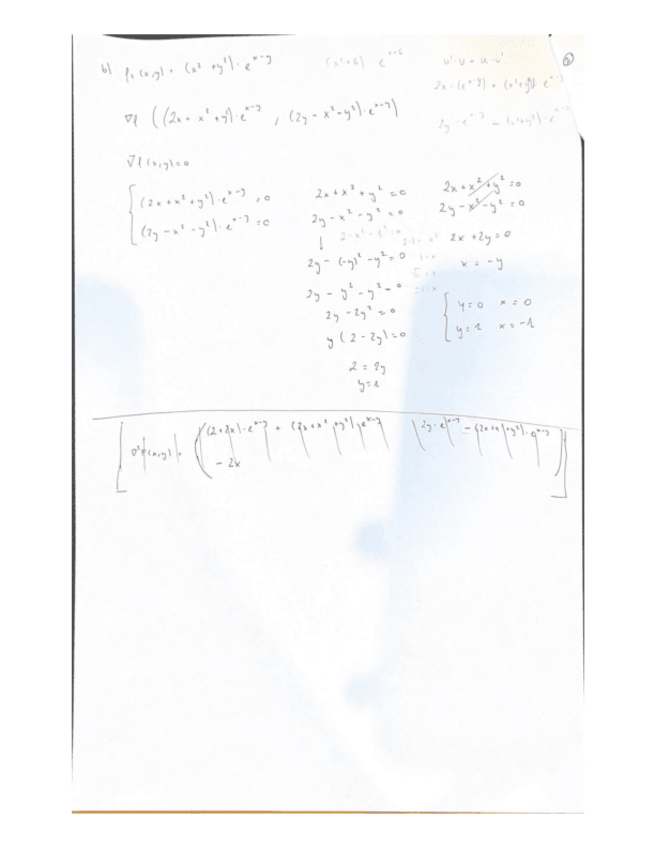 b) f₂(x,y) = (x² + y²)·e^(x-y)
u'·v + u·v'
∇f ((2x + x² + y²)·e^(x-y), (2y - x² - y²)·e^(x-y))
∇f(x,y)=0
{ (2x + x² + y²)·e^(x-y) = 0
(2y - x² - y²)·e^(x-y) = 0
2x + x² + y² = 0
2y - x² - y² = 0
↓
2y - (-y)² - y² = 0
2y - y² - y² = 0
2y - 2y² = 0
y (2 - 2y) = 0
2 = 2y
y = 1
2x + x² + y² = 0
2y - x² - y² = 0
2x + 2y = 0
x = -y
{ y = 0 x = 0
y = 1 x = -1
∇²f(x,y) = ( (2+2x)·e^(x-y) + (2x + x² + y²)·e^(x-y) 2y·e^(x-y) - (2x + x² + y²)·e^(x-y)
- 2x )